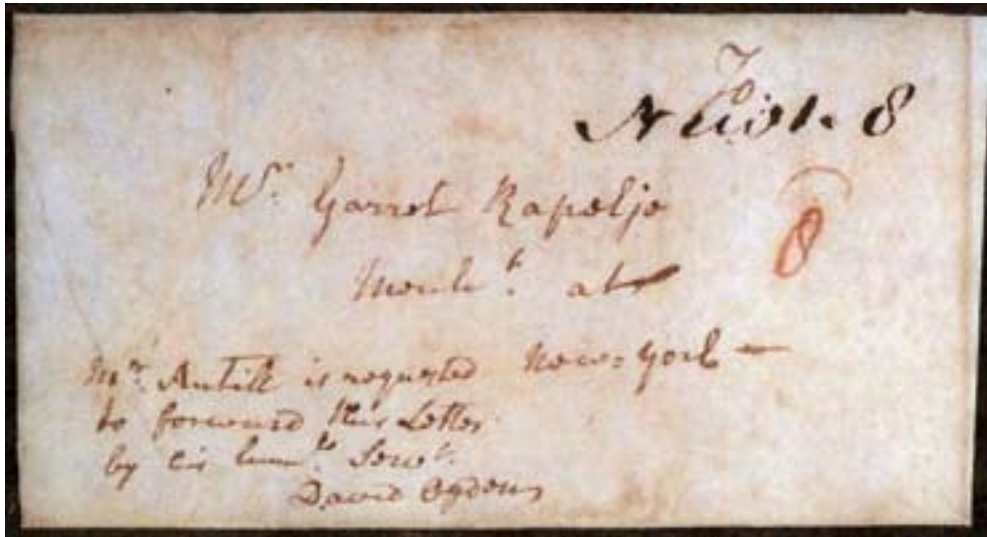 8
Mr. Garret Rapelje
8
Mercht. at
New-York
Mr. Antill is requested
to forward this Letter
by his humle. Servt.
David Ogden